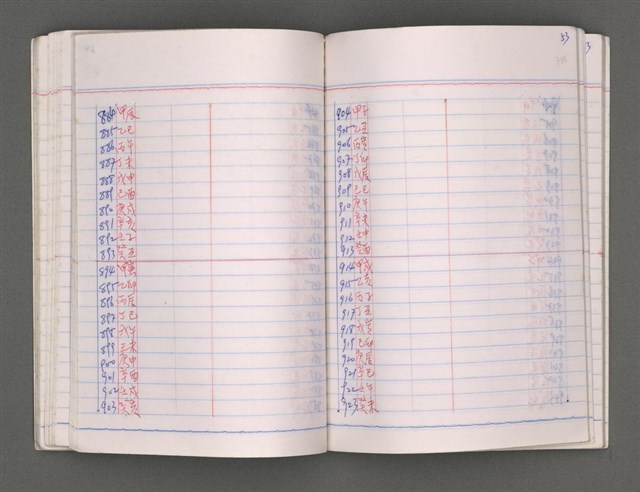 884 甲辰
885 乙巳
886 丙午
887 丁未
888 戊申
889 己酉
890 庚戌
891 辛亥
892 壬子
893 癸丑
894 甲寅
895 乙卯
896 丙辰
897 丁巳
898 戊午
899 己未
900 庚申
901 辛酉
902 壬戌
903 癸亥
53
904 甲子
905 乙丑
906 丙寅
907 丁卯
908 戊辰
909 己巳
910 庚午
911 辛未
912 壬申
913 癸酉
914 甲戌
915 乙亥
916 丙子
917 丁丑
918 戊寅
919 己卯
920 庚辰
921 辛巳
922 壬午
923 癸未